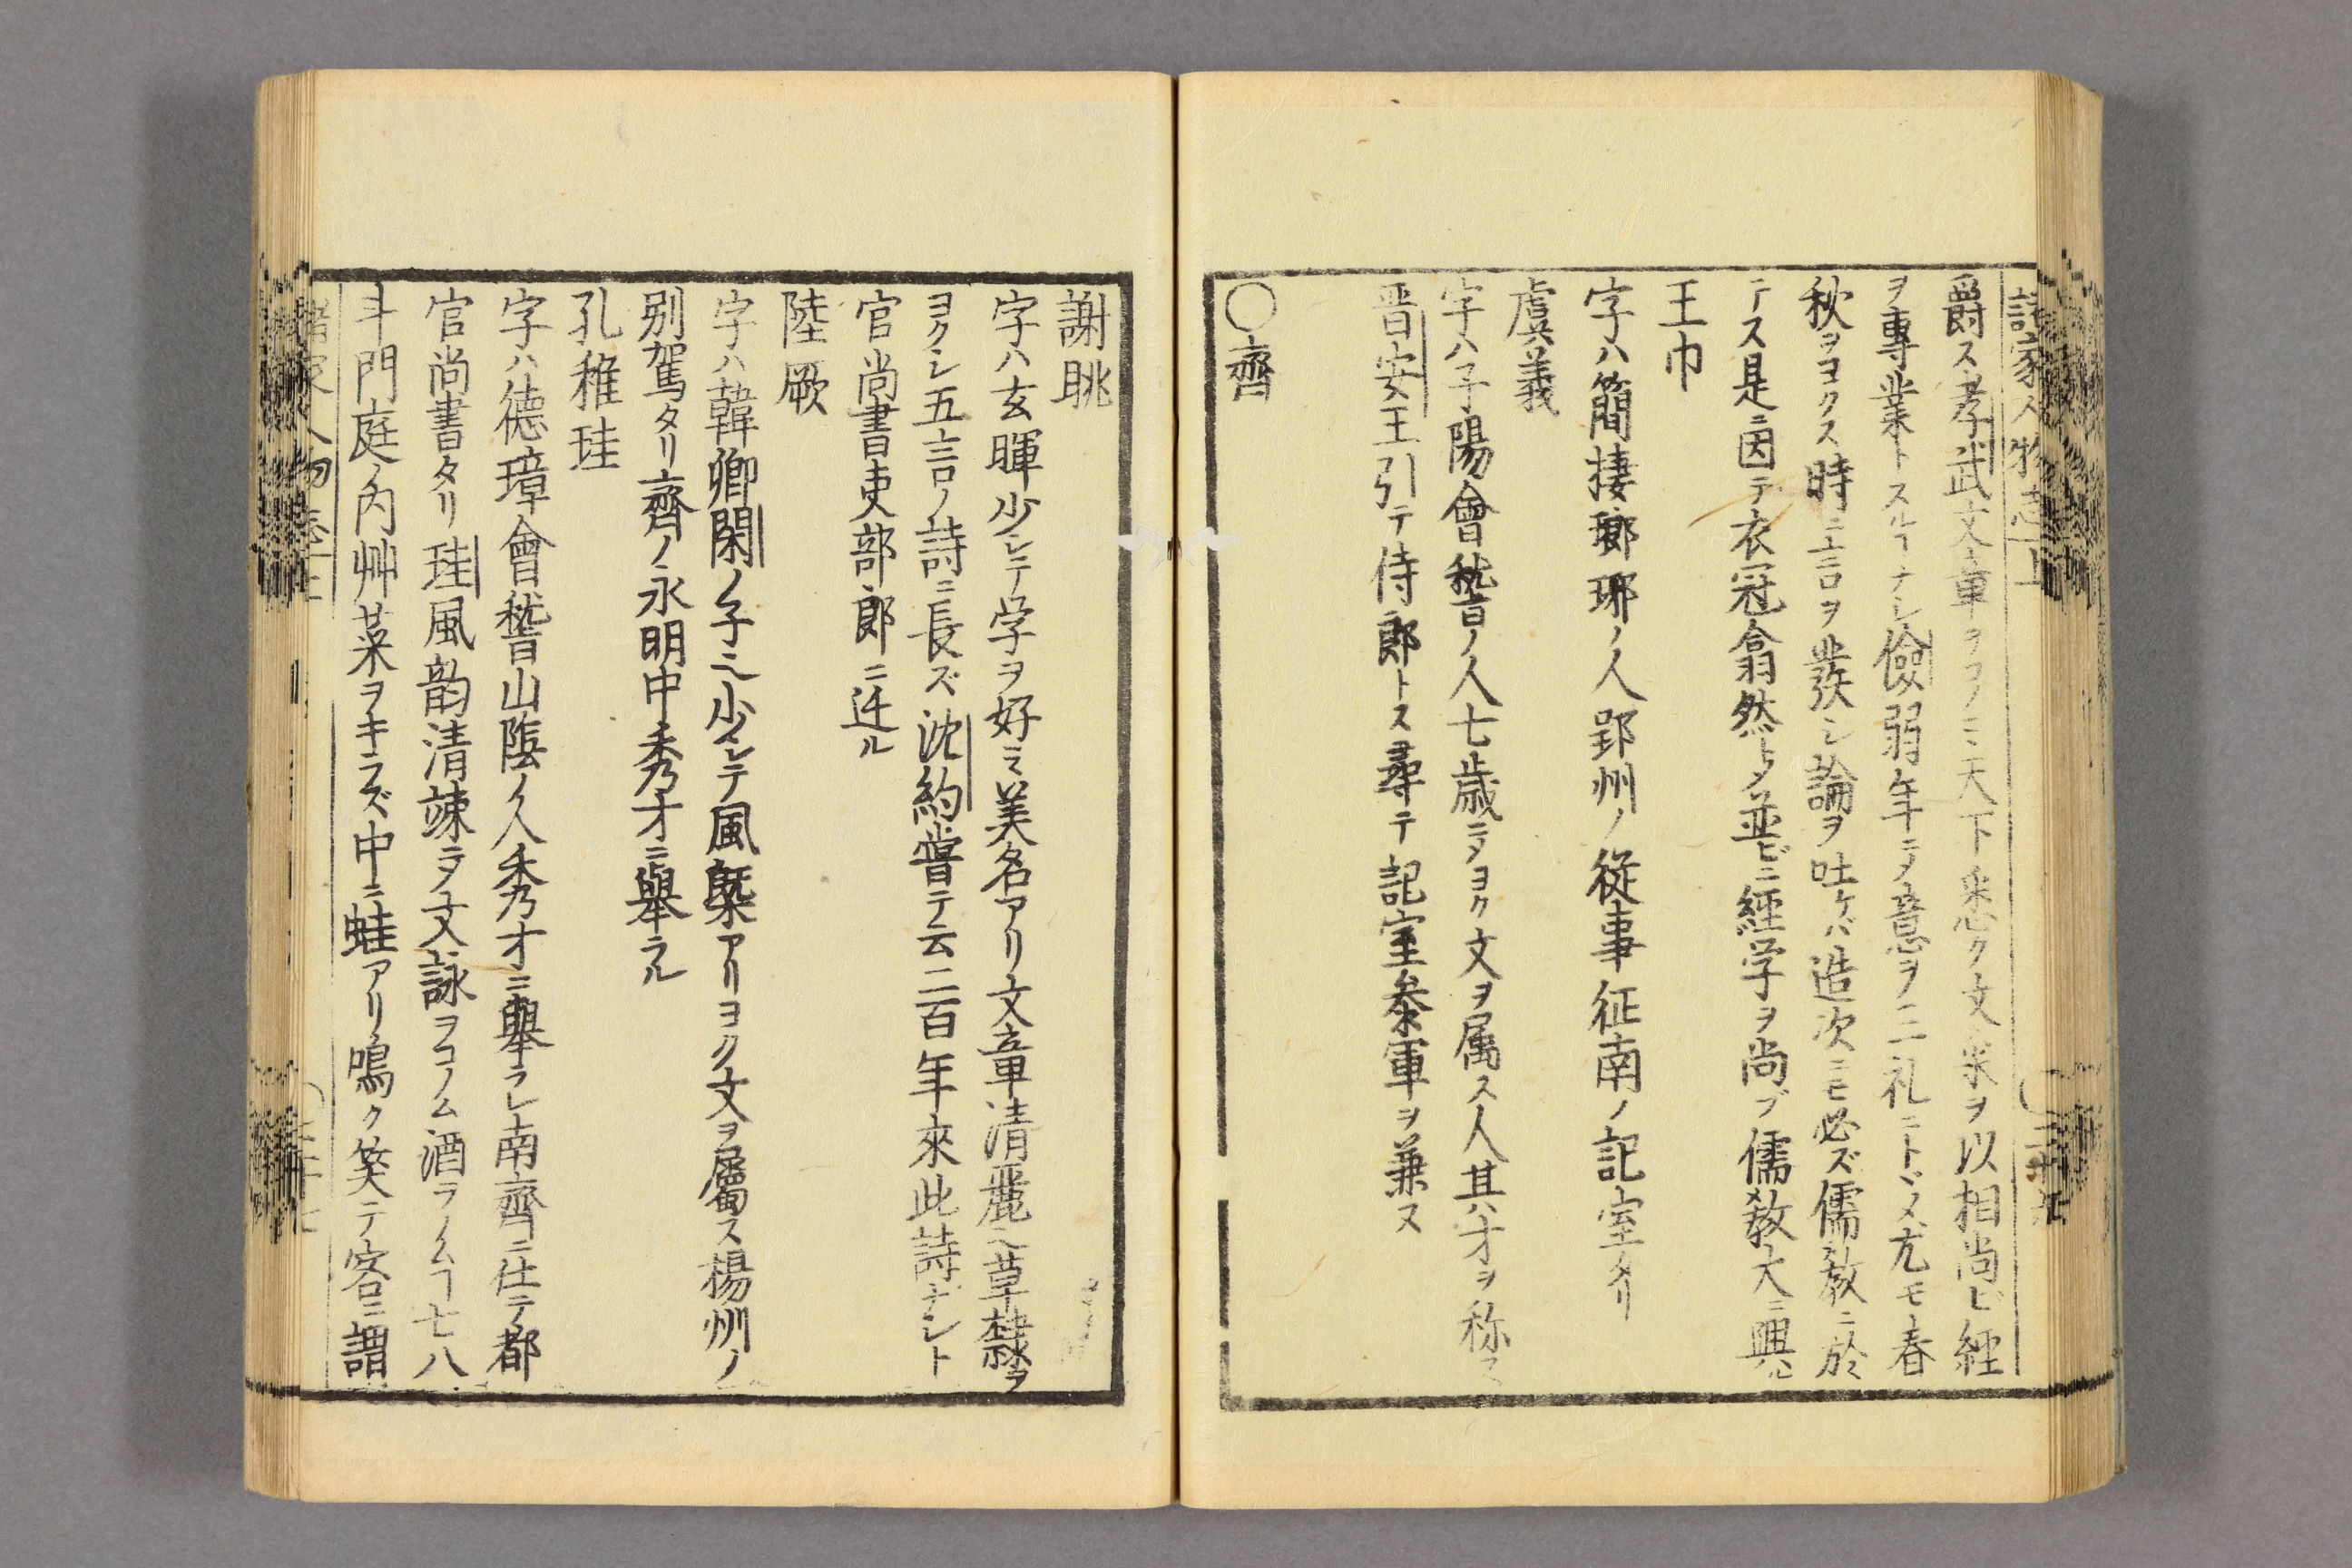 諸家人物志上
爵ス孝武文章ヲコノミ天下悉ク文采ヲ以相尚ビ經
ヲ專業トスルヿナシ儉弱年ニメ意ヲ三礼ニトヾメ尤モ春
秋ヲヨクス時ニ言ヲ發シ論ヲ吐ケバ造次ニモ必ズ儒教ニ於
テス是ニ因テ衣冠翕然トメ並ビニ經学ヲ尚ブ儒教大ニ興ル
王巾
字ハ簡棲瑯琊ノ人郢州ノ從事征南ノ記室タリ
虞羲
字ハ子陽會稽ノ人七歳ニメヨク文ヲ属ス人其才ヲ称ス
晋安王引テ侍郎トス尋テ記室叅軍ヲ兼ス
〇齊
謝眺
字ハ玄暉少シテ学ヲ好ミ美名アリ文章清麗ニ草隸ヲ
ヨクシ五言ノ詩ニ長ズ沈約嘗テ云二百年來此詩ナシト
官尚書吏部郎ニ迁ル
陸厥
字ハ韓卿閑ノ子ニ少シテ風槩アリヨク文ヲ屬ス楊州ノ
別駕タリ齊ノ永明中秀才ニ舉ラル
孔稚珪
字ハ德璋會稽山陰ノ人秀才ニ舉ラレ南齊ニ仕テ都
官尚書タリ珪風韵清疎ニメ文詠ヲコノム酒ヲノムヿ七八
斗門庭ノ内艸菜ヲキラズ中ニ蛙アリ鳴ク笑テ客ニ謂
諸家人物志上